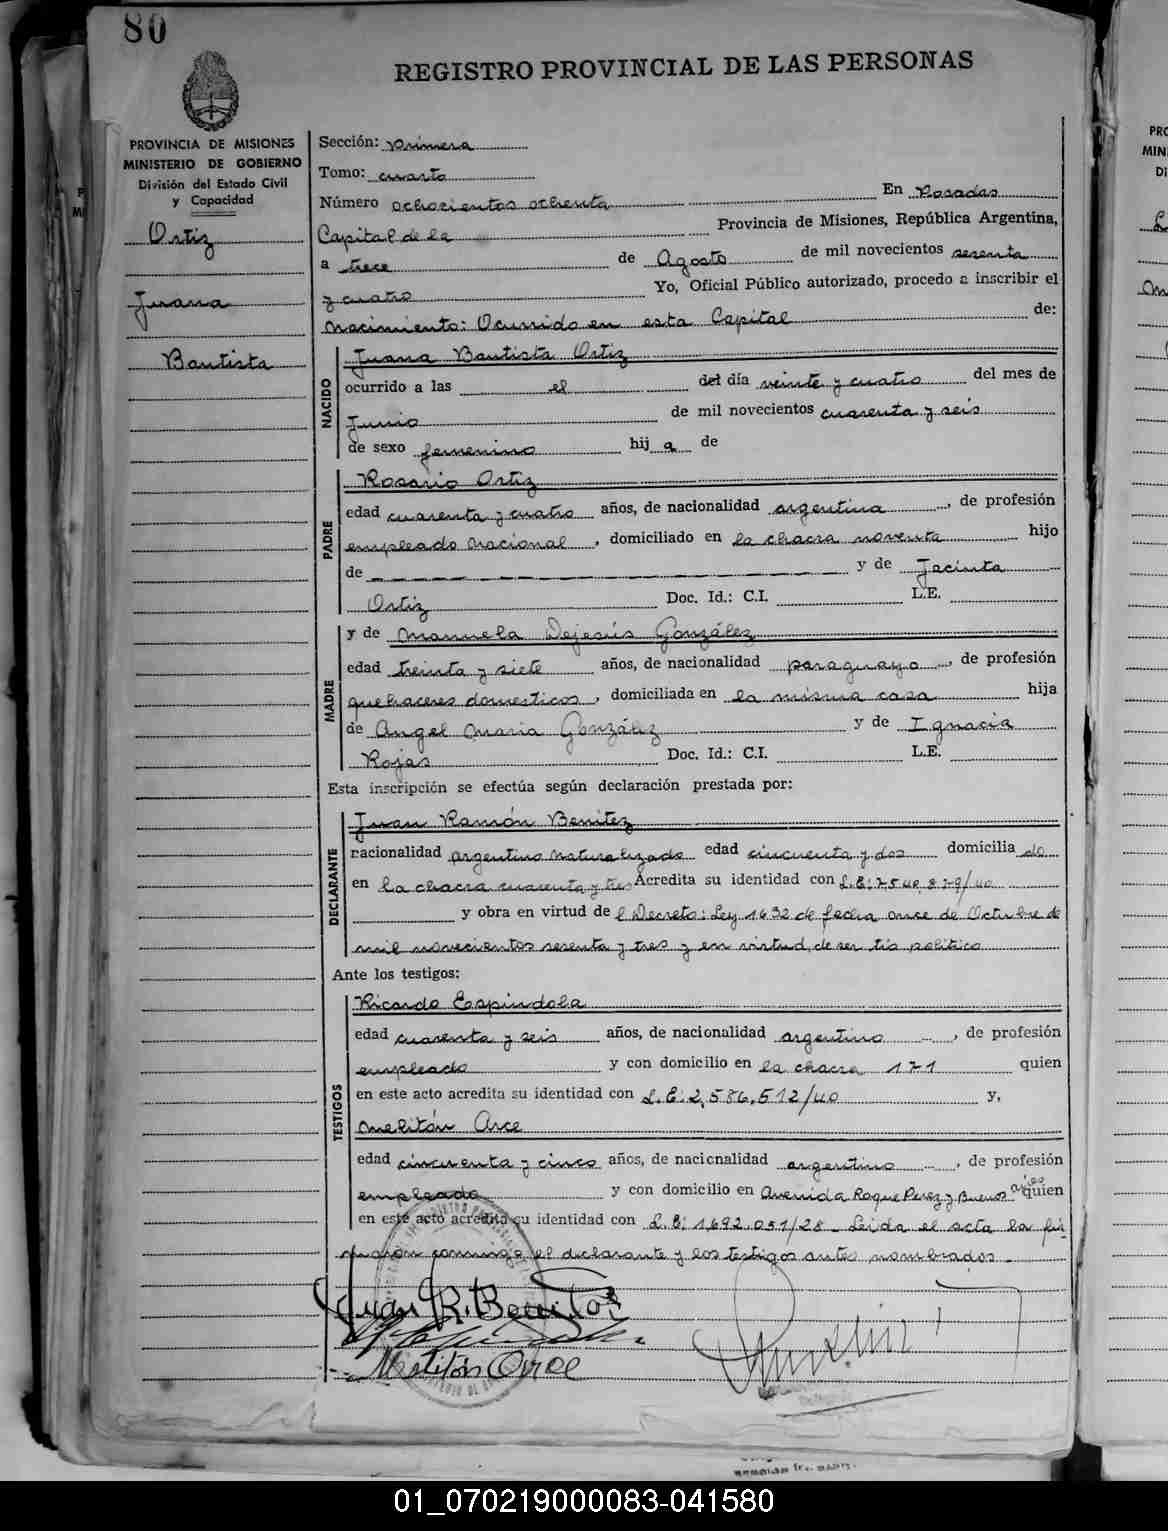 80
REGISTRO PROVINCIAL DE LAS PERSONAS
PROVINCIA DE MISIONES
MINISTERIO DE GOBIERNO
División del Estado Civil
y Capacidad
Ortiz
Juana
Bautista
Sección: Primera
Tomo: cuarto
Número ochocientos ochenta En Posadas
Capital de la Provincia de Misiones, República Argentina,
a trece de Agosto de mil novecientos sesenta
y cuatro Yo, Oficial Público autorizado, procedo a inscribir el
nacimiento: Ocurrido en esta Capital de:
NACIDO
Juana Bautista Ortiz
ocurrido a las el del día veinte y cuatro del mes de
Junio de mil novecientos cuarenta y seis
de sexo femenino hij a de
PADRE
Rosario Ortiz
edad cuarenta y cuatro años, de nacionalidad argentina, de profesión
empleado nacional, domiciliado en la chacra noventa hijo
de — — — — — — — — — — y de Jacinta
Ortiz Doc. Id.: C.I. L.E.
MADRE
y de Manuela Dejesús González
edad treinta y siete años, de nacionalidad paraguaya, de profesión
quehaceres domesticos, domiciliada en la misma casa hija
de Angel Maria González y de Ignacia
Rojas Doc. Id.: C.I. L.E.
Esta inscripción se efectúa según declaración prestada por:
DECLARANTE
Juan Ramón Benitez
nacionalidad argentino naturalizado edad cincuenta y dos domicilia do
en la chacra cuarenta y tres Acredita su identidad con L.E: 7540.879/40
y obra en virtud de l Decreto: Ley 1632 de fecha once de Octubre de
mil novecientos sesenta y tres y en virtud de ser tio politico
Ante los testigos:
TESTIGOS
Ricardo Espindola
edad cuarenta y seis años, de nacionalidad argentino, de profesión
empleado y con domicilio en la chacra 171 quien
en este acto acredita su identidad con L.E: 2,586,512/40 y,
Melitón Arce
edad cincuenta y cinco años, de nacionalidad argentino, de profesión
empleado y con domicilio en Avenida Roque Perez y Buenos aires quien
en este acto acredita su identidad con L.E: 1.692.051/28 Leida el acta la
conmigo el declarante y los testigos antes nombrados.
Juan R. Benitez
Melitón Arce
01_070219000083-041580